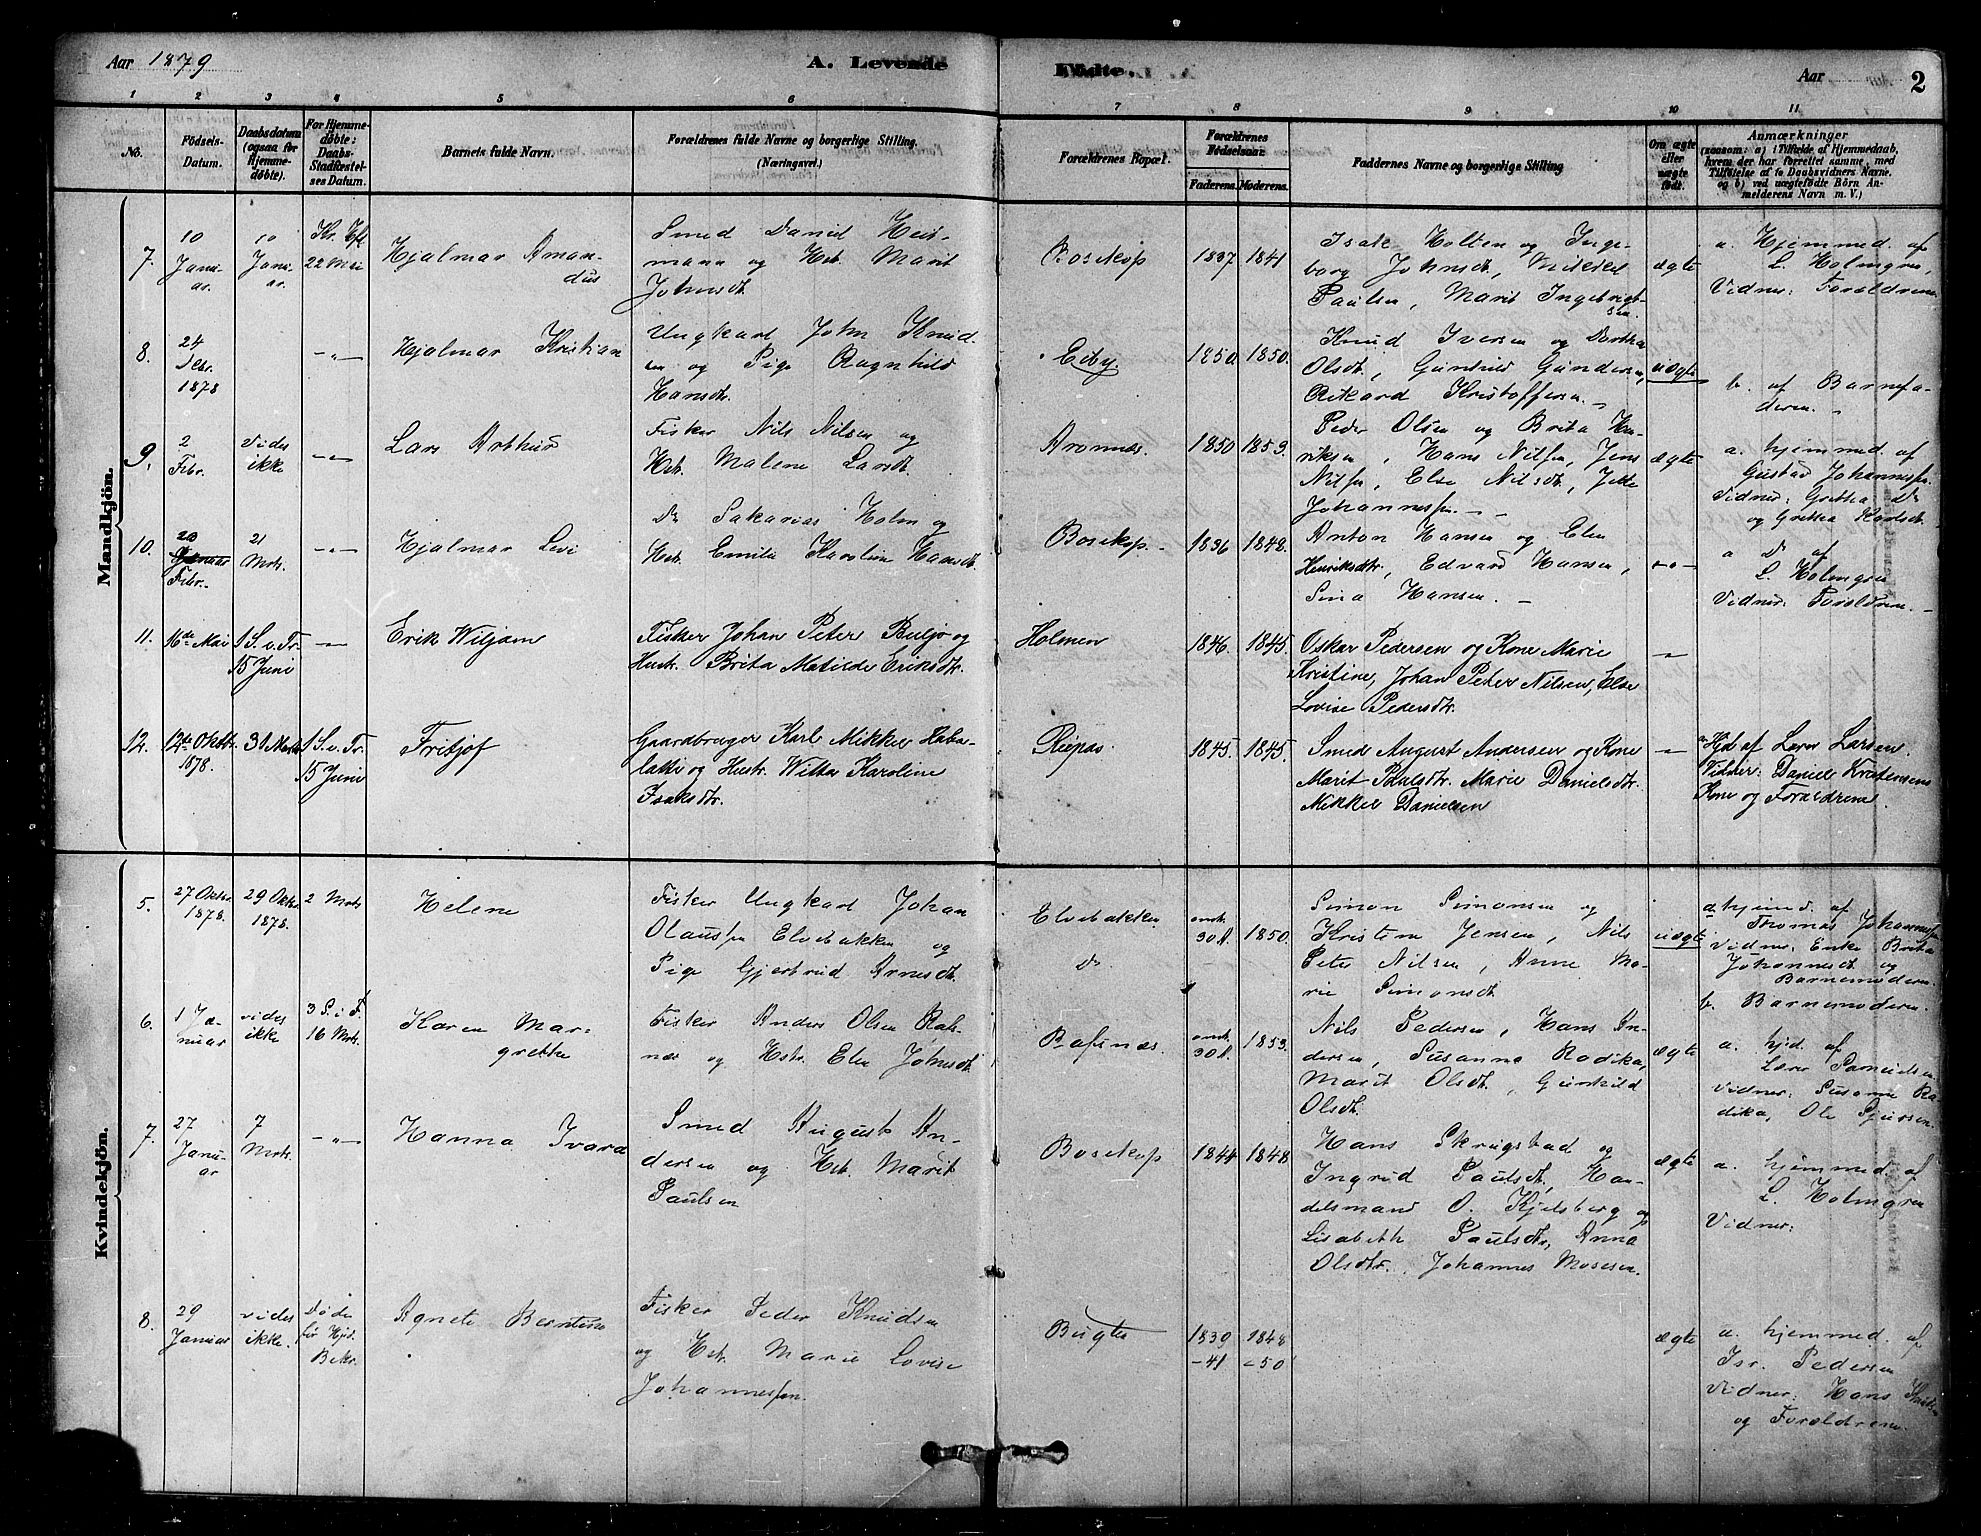 Aar 1879
A. Levende
Födte.
Aar
2
1
2
3
4
5
6
7
8
9
10
11
No.
Födsels-
Datum.
Daabsdatum
(ogsaa for
Hjemme-
döbte).
For Hjemme-
döbte:
Daabs-
Stadfæstel-
ses Datum.
Barnets fulde Navn.
Forældrenes fulde Navne og borgerlige Stilling.
(Næringsvei.)
Forældrenes Bopæl.
Forældrenes
Födselsaar.
Faderens.
Moderens.
Faddernes Navne og borgerlige Stilling
Om ægte
eller
uægte
født.
Anmærkninger
(saasom: a) i Tilfælde af Hjemmedaab,
hvem der har forrettet samme, med
Tilföielse af to Daabsvidners Navne.
og b) ved uægtefödte Börn An-
melderens Navn m. V.)
Mandkjön.
7.
10
Janu-
ar.
10
Janu-
ar.
Kr. Hfl
22 Mai
Hjalmar Aman-
dus
Smed Daniel Heit-
mann og Hst. Marit
Johnsdt.
Bosekop
1837.
1841
Isak Holten og Inge-
borg Johnsdt, Mikkel
Paulsen, Marit Ingebrigt-
sen.
ægte
a. Hjemmed. af
L. Holmgren,
Vidner: Forældrene
8.
24
Debr.
1878
-"-
Hjalmar Kristian
Ungkarl John Knud-
sen og Pige Ragnhild
Hansdtr.
Eiby.
1850.
1850.
Knud Iversen og Dorthea
Olsdt, Gunhild Gundersen,
Rikard Kristoffersen. -
uægte
b. af Barnefa-
deren. -
9.
2
Febr.
vides
ikke
-"-
Lars Arthur
Fisker Nils Nilsen og
Hst. Malene Larsdt.
Aronnæs.
1850
1853.
Peder Olsen og Brita Hen-
riksen, Hans Nilsen, Jens
Nilsen, Else Nilsdt,
Johannesen. -
ægte
a. hjemmed. af
Gustav Johannesen.
Vidner: Gretha Do
og Gretha Karlsdt.
10.
23
Januar
Febr.
21
Mrts.
-"-
Hjalmar Levi
Do Sakarias Holm og
Hst. Emilie Karoline Hansdt.
Bosekop.
1836
1848.
Anton Hansen og Elen
Henriksdtr, Edvard Hansen,
Sina Hansen. -
-"-
a Do af
L. Holmgren
Vidner: Forældrene. -
11.
16de Mai
1 S. e. Tr.
15 Juni
-"-
Erik Wiljam
Fisker Johan Peter Buljo og
Hustr. Brita Matilde Eriksdtr.
Holmen
1846.
1845.
Oskar Pedersen og Kone Marie
Kristine, Johan Peter Nilsen, Else
Lovise Pedersdtr.
-"-
12.
12te Oktbr.
1878.
31 Marts
1 S. e. Tr.
15 Juni
Fritjof
Gaardbruger Karl Mikkel Haba-
latti og Hustr. Witta Karoline
Isaksdtr.
Raipas.
1845.
1845.
Smed August Andersen og Kone
Marit Paulsdtr. Marie Danielsdtr.
Mikkel Danielsen
-"-
a Hjd. af Lærer Larsen.
Vidner: Daniel Kristensens
Kone og Forældrene.
Kvindekjön.
5.
27 Oktbr.
1878.
29 Oktbr.
1878.
2 Mrts
Helene
Fisker Ungkarl Johan
Olausen Elvebakken og
Pige Gjertrud Arnesdt.
Elvebakken
Do
omtr.
30 A.
1850.
Simon Simonsen og
Kristine Jensen, Nils
Peter Nilsen, Anne Ma-
rie Simonsdt.
uægte
a hjemd. af
Thomas Johannesen
Vidner: Enke Brita
Johannesdt. og
Barnemoderen.
b. Barnemoderen.
6.
1 Ja-
nuar
vides
ikke
3 S. i F.
16 Mrts.
Karen Mar-
grethe
Fisker Anders Olsen Rafs-
næs og Hstr. Elen Johnsdt.
Rafsnæs.
omtr.
30 A.
1853.
Nils Pedersen, Hans An-
dersen, Susanna Radika,
Marit Olsdt, Gunhild
Olsdt.
ægte
a. hjd. af
Lærer
Vidner: Susanne Ra-
dika, Ole
7.
27
Janu-
ar
7
Mrts.
-"-
Hanna Ivara
Smed August An-
dersen og Hst. Marit
Paulsen
Bosekop
1844
1848
Hans Skrugstad og
Ingrid Paulsdt, Han-
delsmand O. Kjelsberg og
Lisabeth Paulsdtr, Anna
Olsdtr. Johannes Mosesen.
ægte
a. hjemmed. af
L. Holmgren
Vidner:
8.
29
Januar
vides
ikke.
Døde
før Hjd.
Bekr.
Agnete Berntine
Fisker Peder Knudsen
og Hst. Marie Lovise
Johannesen.
Bugten
1839
-41
1848
-50
ægte
a. hjemmed. af
Isr. Pedersen
Vidner: Hans Knudsen
og Forældrene.